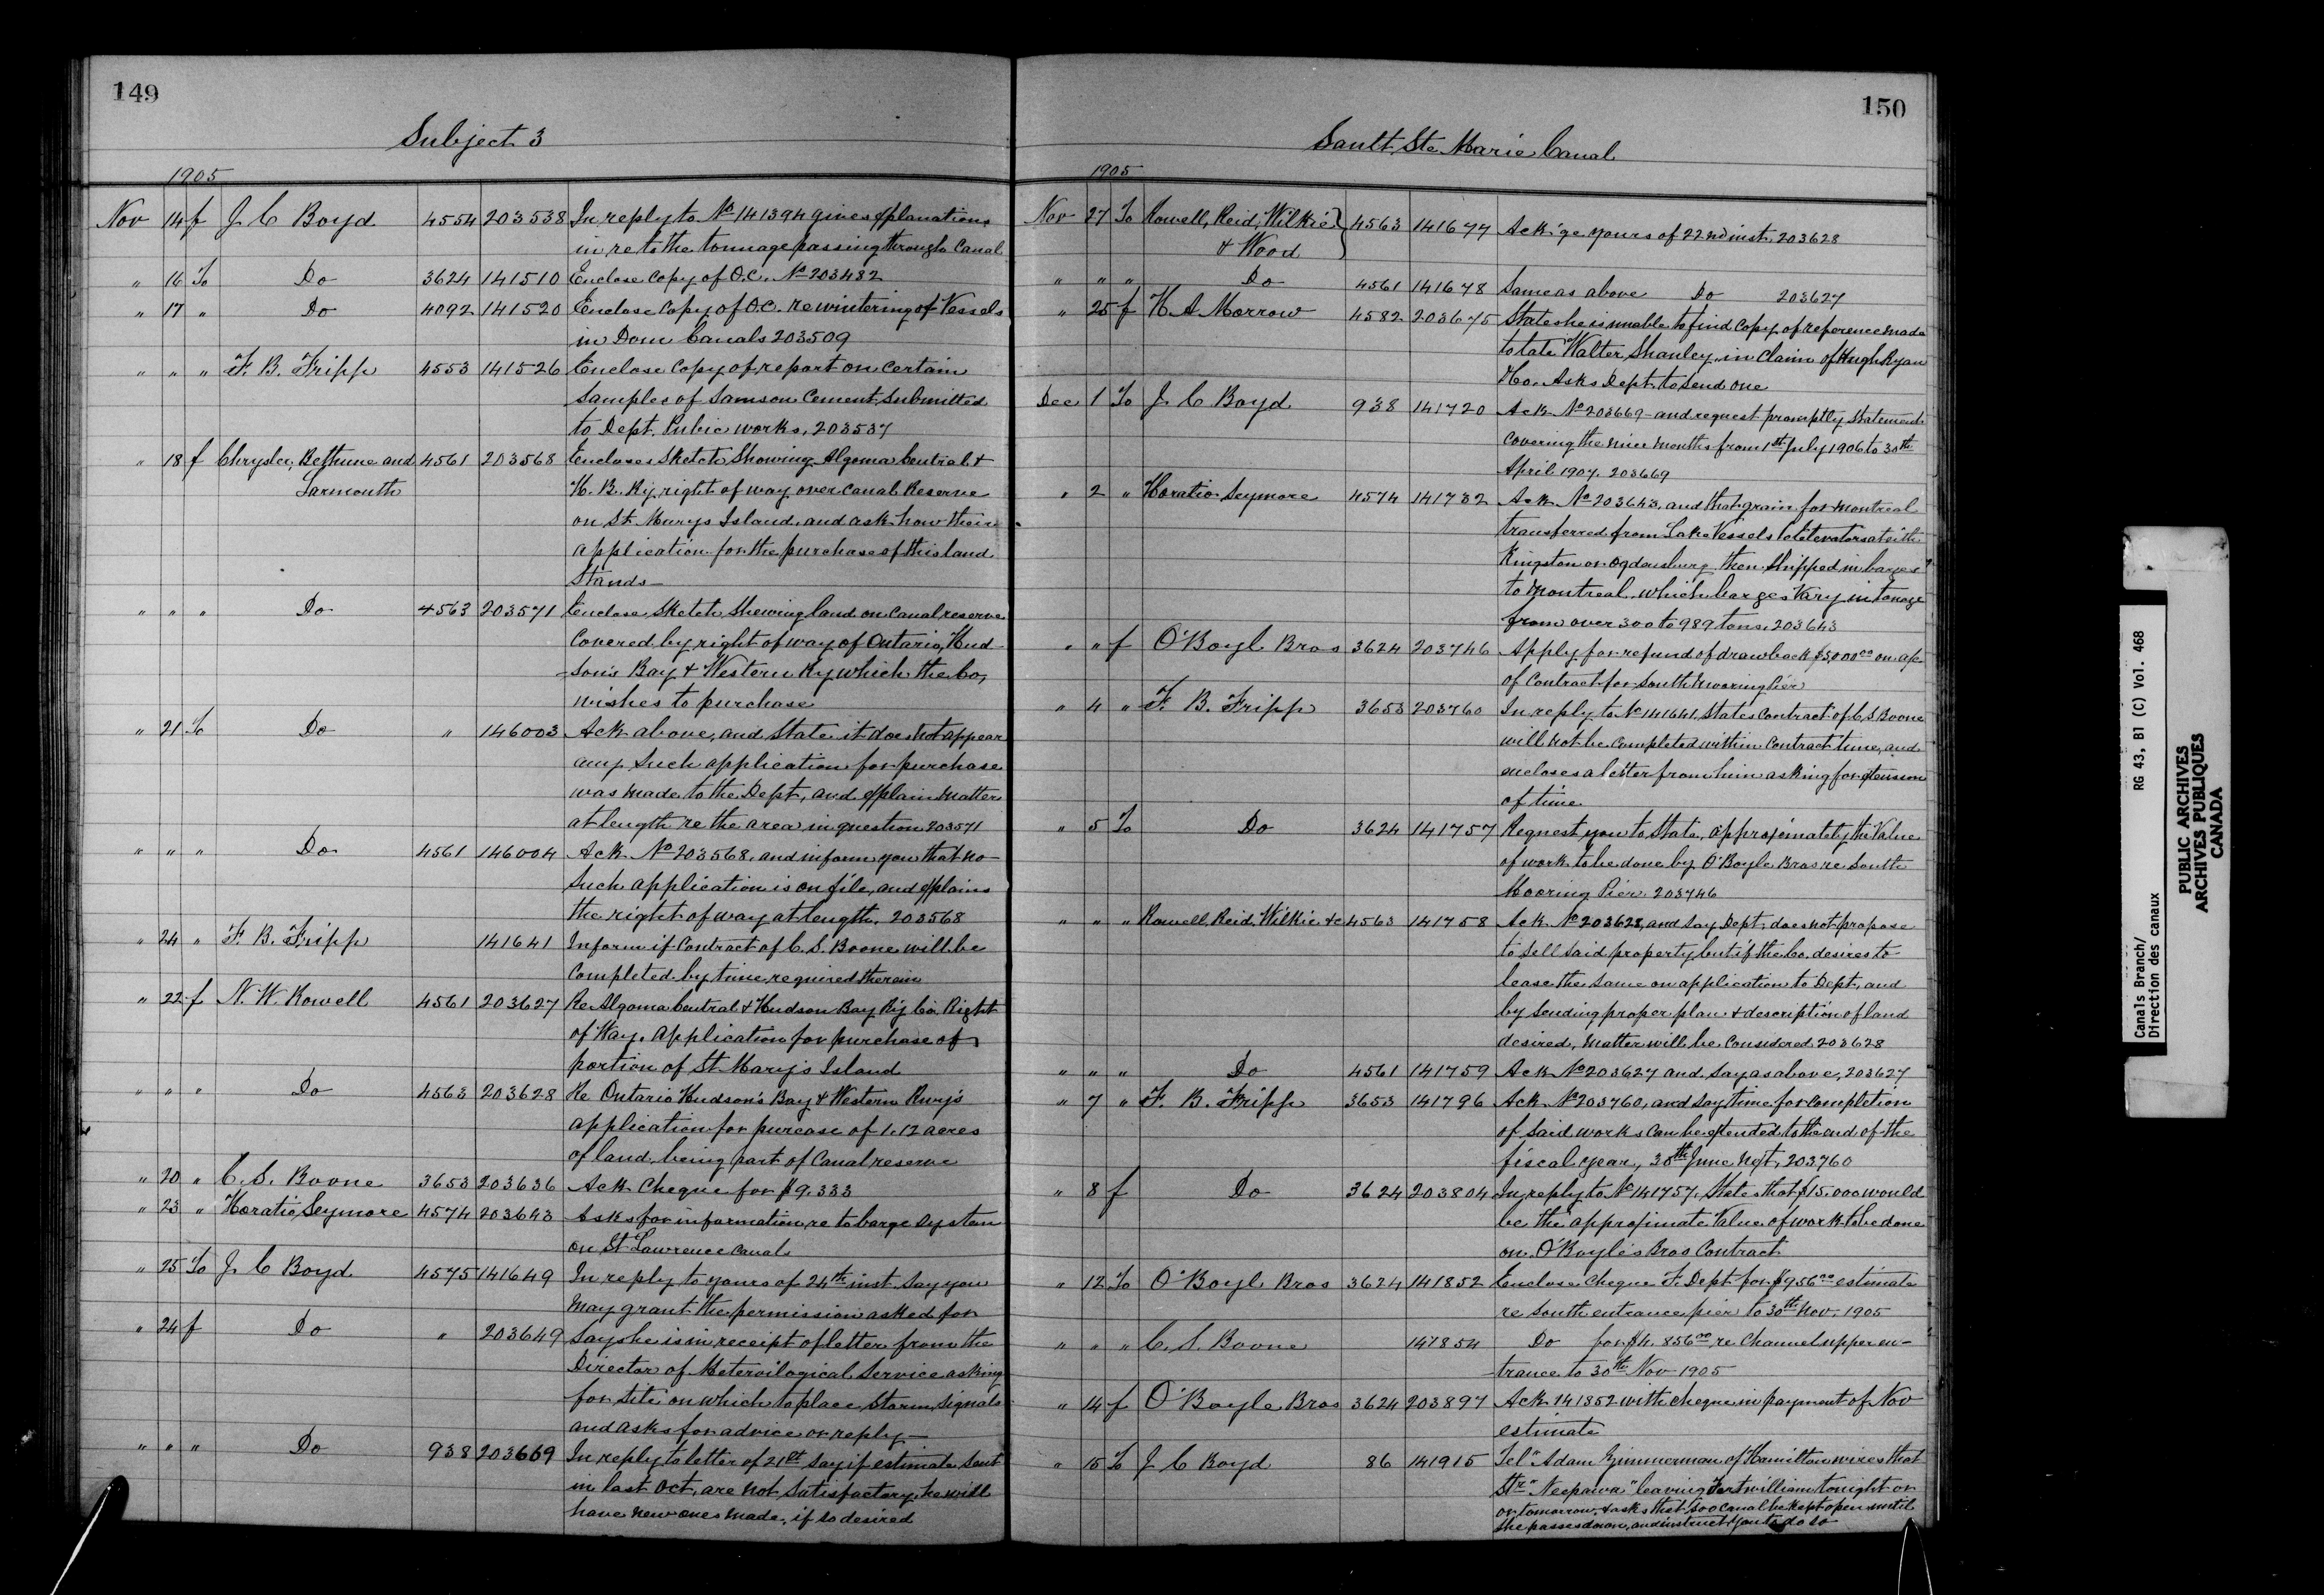 149
Subject 3
1905
Nov 14 f J C Boyd 4554 203538 In reply to No 141394 gives explanations
in re to the tonnage passing through Canal
" 16 To Do 3624 141510 Enclose Copy of O.C. No 203482
" 17 " Do 4092 141520 Enclose Copy of O.C. re wintering of Vessels
in Dom Canals 203509
" " " F. B. Fripp 4553 141526 Enclose Copy of report on Certain
Samples of Samson Cement, Submitted
to Dept. Pubic works, 203537
" 18 f Chrysler, Bethune and 4561 203568 Encloses Sketch Showing Algoma Central &
Larmouth H. B. Ry, right of way over Canal Reserve
on St Marys Island, and ask how their
application for the purchase of this land
Stands—
" " " Do 4563 203571 Enclose Sketch Shewing land on Canal reserve
Covered by right of way of Ontario, Hud-
-son's Bay & Western Ry which the Co,
wishes to purchase
" 21 To Do " 146003 Ack above, and State it does not appear
any Such application for purchase
was made to the Dept, and explain matter
at length re the area in question 203571
" " " Do 4561 146004 Ack No 203568, and inform you that no
Such application is on file, and explains
the right of way at length. 203568
" 24 " F. B. Fripp 141641 Inform if Contract of C. S. Boone will be
Completed by time required therein
" 22 f N. W. Rowell 4561 203627 Re Algoma Central & Hudson Bay Ry Co. Right
of Way. application for purchase of
portion of St Mary's Island
" " " Do 4563 203628 Re Ontario Hudson's Bay & Western Rwy's
application for purcase of 1.12 acres
of land, being part of Canal reserve
" 20 " C. S. Boone 3653 203636 Ack Cheque for $9.333
" 23 " Horatio Seymore 4574 203643 Asks for information re to barge System
on St Lawrence Canals
" 25 To J C Boyd 4575 141649 In reply to yours of 24th inst. Say you
May grant the permission asked for
" 24 f Do " 203649 Says he is in receipt of letter from the
Director of Meteroilogical Service asking
for site on which to place Storm, Signals
and asks for advice or reply—
" " " Do 938 203669 In reply to letter of 21st Say if estimate Sent
in last Oct, are not Satisfactory, he will
have new ones made, if so desired
150
Sault Ste Marie Canal
1905
Nov 27 To Rowell, Reid, Wilkie 4563 141677 Ack'ge yours of 22nd inst. 203628
& Wood
" " " Do 4561 141678 Same as above Do 203627
" 25 f H A Morrow 4582 203675 States he is unable to find Copy of reference made
to late Walter Shanley, in Claim of Hugh Ryan
& Co. Asks Dept. to Send one
Dec 1 To J C Boyd 938 141720 Ack No 203669 and request promptly Statement
Covering the nine months from 1st July 1906 to 30th
April 1907. 203669
" 2 " Horatio Seymore 4574 141732 Ack No 203643, and that grain for montreal
transferred from Lake Vessels to elevators at either
Kingston or Ogdensburg then Shipped in barges
to Montreal which barges Vary in tonage
from over 300 to 989 tons, 203643
" " f O'Boyl Bros 3624 203746 Apply for refund of drawback $5,000.00 on a/c
of Contract for South Mooring Pier
" 4 " F. B. Fripp 3653 203760 In reply to No 141641, States Contract of C, S Boone
will not be Completed within Contract time, and
encloses a letter from him asking for extension
of time.
" 5 To Do 3624 141757 Request you to State, approximately the Value
of work to be done by O'Boyle Bros re South
Mooring Pier. 203746
" " " Rowell, Reid, Wilkie &c 4563 141758 Ack No 203628, and Say Dept. does not propose
to Sell Said property, but if the Co. desires to
lease the Same on application to Dept, and
by Sending proper plan & description of land
desired, Matter will be Considered 203628
" " " Do 4561 141759 Ack No 203627 and Say as above, 203627
" 7 " F. B. Fripp 3653 141796 Ack No 203760, and Say time for Completion
of Said works Can be extended to the end of the
fiscal year, 30th June next, 203760
" 8 f Do 3624 203804 In reply to No 141757, States that $15.000 would
be the approximate Value of work to be done
on O'Boyle's Bros Contract
" 12 To O'Boyl Bros 3624 141852 Enclose Cheque F. Dept for $956.00 estimate
re South entrance pier to 30th Nov. 1905
" " " C. S. Boone 141854 Do for $4.856.00 re Channel upper en-
trance to 30th Nov 1905
" 14 f O'Boyle Bros 3624 203897 Ack 141852 with Cheque in payment of Nov
estimate
" 15 To J C Boyd 86 141915 Tel "Adam Zimmerman of Hamilton wires that
Str "Neepawa" leaving Fort william tonight or
or tomorrow, & asks that Soo Canal be kept open until
She passes down, and instruct you to do so
Canals Branch/
Direction des canaux
RG 43, B1 (C) Vol. 468
PUBLIC ARCHIVES
ARCHIVES PUBLIQUES
CANADA